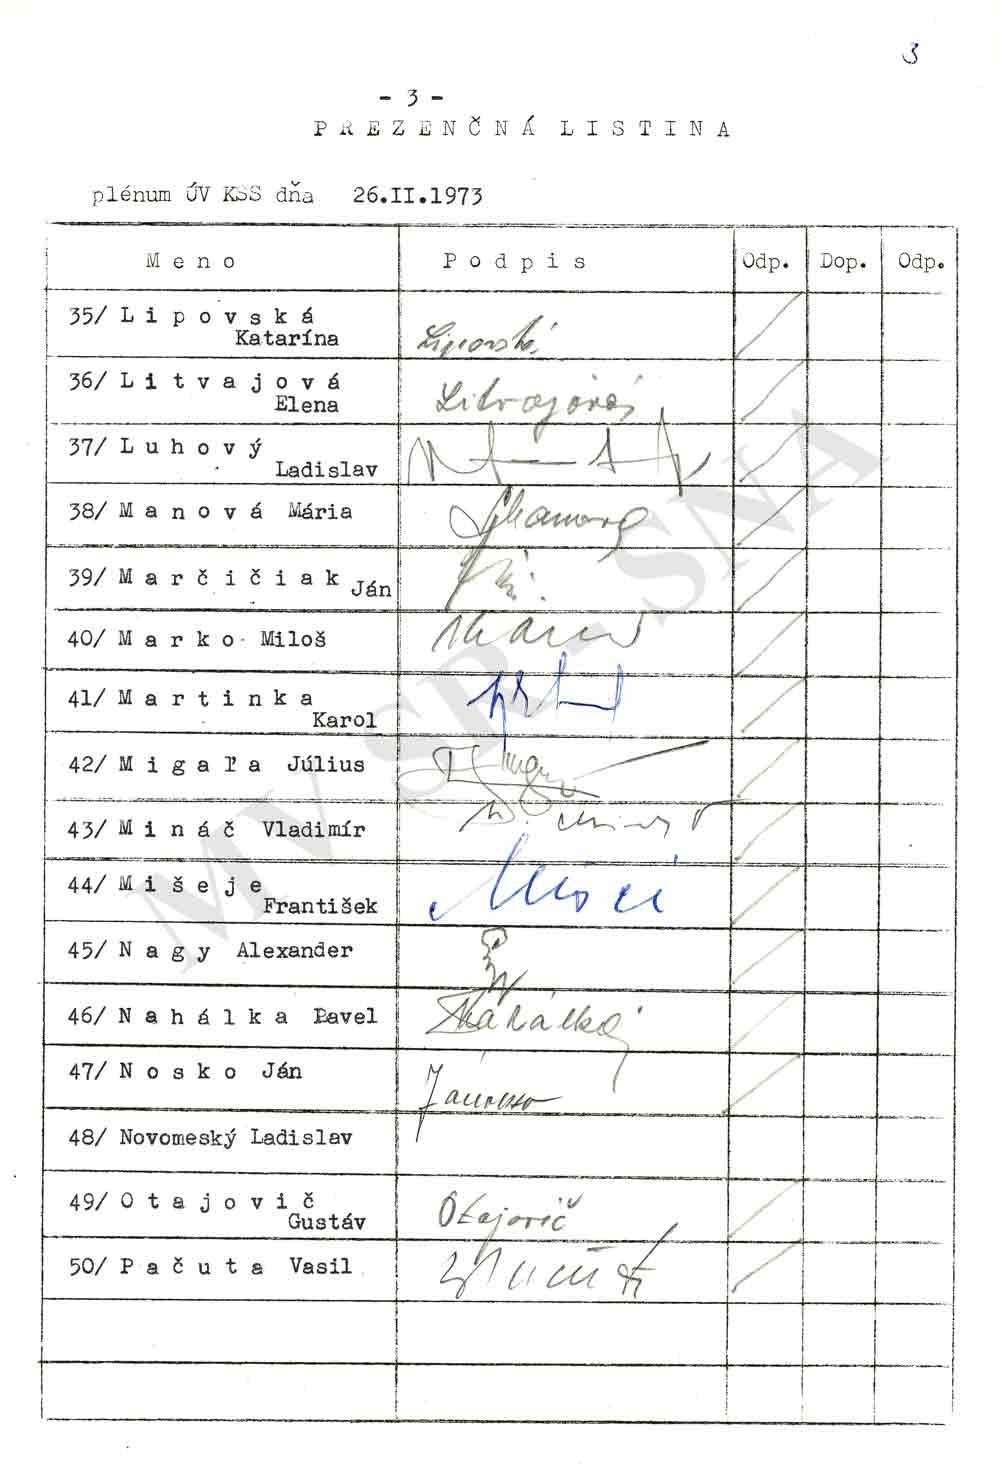 3
- 3 -
PREZENČNÁ LISTINA
plénum ÚV KSS dňa 26.II.1973
Meno Podpis Odp. Dop. Odp.
35/ Lipovská
Katarína Lipovská
36/ Litvajová
Elena Litvajová
37/ Luhový
Ladislav
38/ Manová Mária
39/ Marčičiak
Ján
40/ Marko Miloš
41/ Martinka
Karol
42/ Migaľa Július
43/ Mináč Vladimír
44/ Mišeje
František
45/ Nagy Alexander
46/ Nahálka Pavel Nahálka
47/ Nosko Ján
48/ Novomeský Ladislav
49/ Otajovič
Gustáv Otajovič
50/ Pačuta Vasil
MV SR - SNA